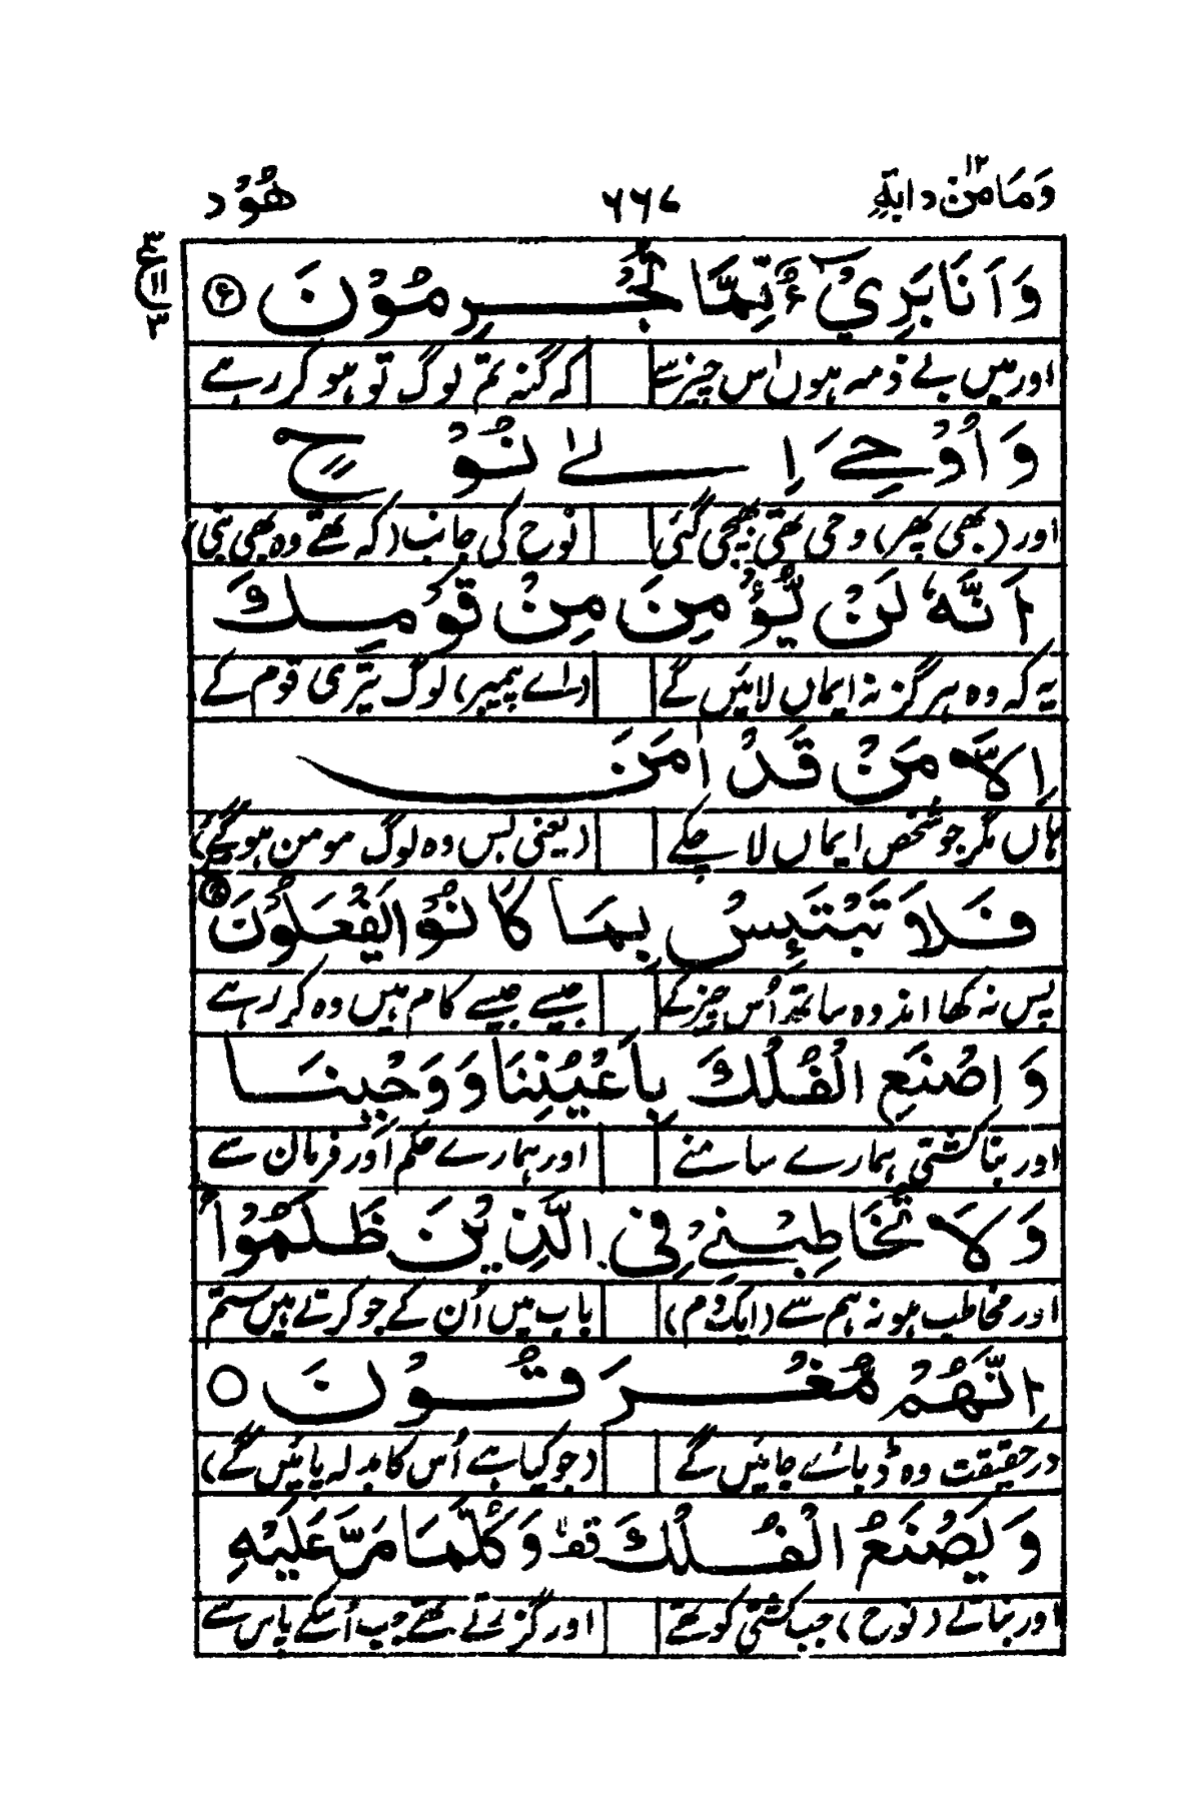 وَمَا مِنْ دَابَّةٍ ۱۲ ۶۶۷ هُوْد
وَاَنَا بَرِیْٓءٌ مِّمَّا تُجْرِمُوْنَ
اور میں بے ذمہ ہوں اس چیز سے کہ گنہ تم لوگ تو ہو کر رہے
وَاُوْحِیَ اِلٰی نُوْحٍ
اور (بھی پھر) وحی تھی بھیجی گئی نوح کی جانب (کہ تھے وہ بھی نبی)
اَنَّهٗ لَنْ یُّؤْمِنَ مِنْ قَوْمِكَ
یہ کہ وہ ہرگز نہ ایماں لائیں گے (اے پیمبر) لوگ تیری قوم کے
اِلَّا مَنْ قَدْ اٰمَنَ
ہاں مگر جو شخص ایماں لا چکے (یعنی بس وہ لوگ مومن ہو گئے)
فَلَا تَبْتَىِٕسْ بِمَا كَانُوْا یَفْعَلُوْنَ
پس نہ کھا اندوہ ساتھ اُس چیز کے جیسے جیسے کام ہیں وہ کر رہے
وَاصْنَعِ الْفُلْكَ بِاَعْیُنِنَا وَوَحْیِنَا
اور بنا کشتی ہمارے سامنے اور ہمارے حکم اور فرمان سے
وَلَا تُخَاطِبْنِیْ فِی الَّذِیْنَ ظَلَمُوْا
اور مخاطب ہو نہ ہم سے (ایک دم) باب میں اُن کے جو کرتے ہیں ستم
اِنَّهُمْ مُّغْرَقُوْنَ ○
در حقیقت وہ ڈبائے جائیں گے (جو کیا ہے اُس کا بدلہ پائیں گے)
وَیَصْنَعُ الْفُلْكَ قف وَكُلَّمَا مَرَّ عَلَیْهِ
اور بناتے (نوح) جب کشتی کو تھے اور گزرتے تھے جب اُسکے پاس سے